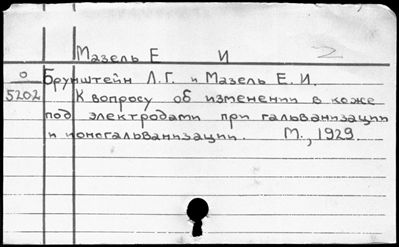 Мазель Е И 2
О Брунштейн Л.Г. и Мазель Е.И.
5202 К вопросу об изменении в коже
под электродами при гальванизации
и ионогальванизации. М., 1929.